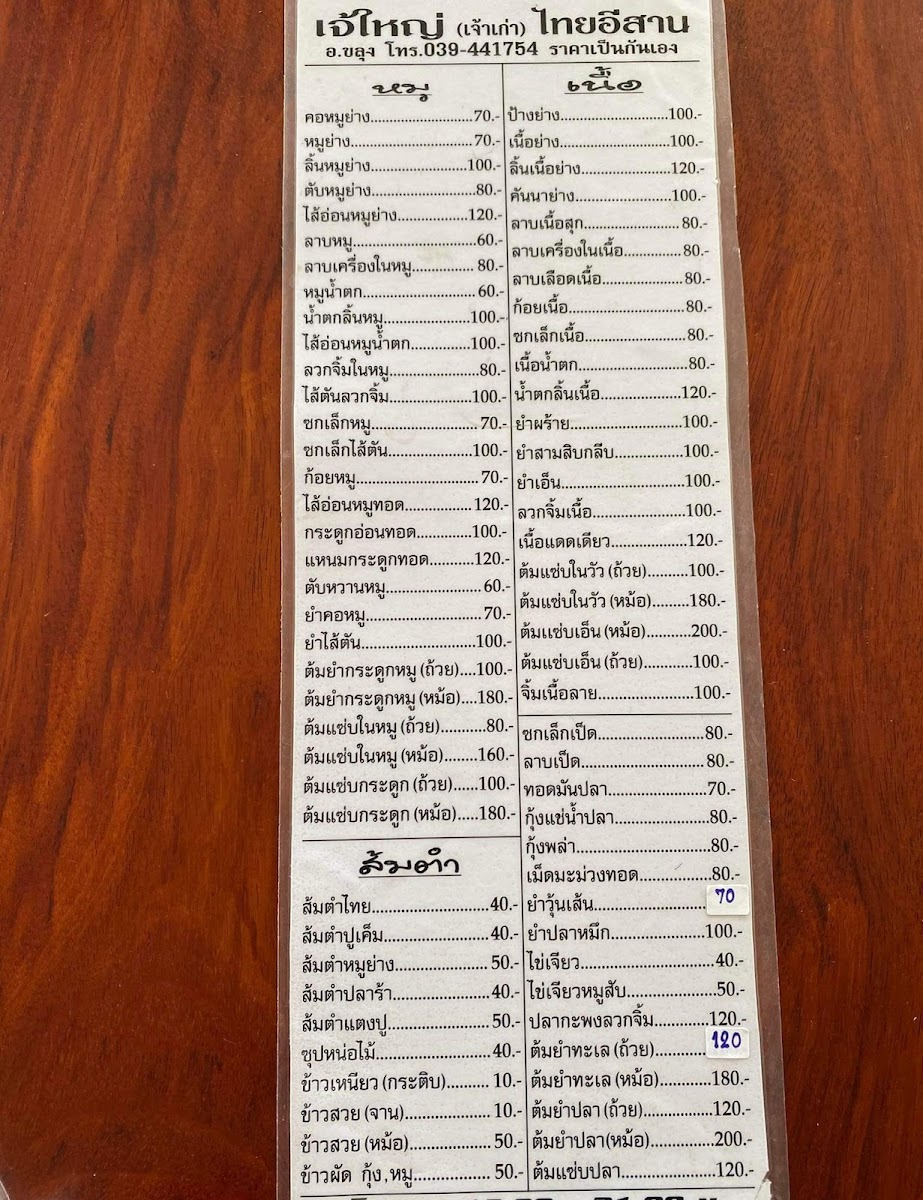 เจ้ใหญ่ (เจ้าเก่า) ไทยอีสาน
อ.ขลุง โทร.039-441754 ราคาเป็นกันเอง
หมู
คอหมูย่าง............................70.-
หมูย่าง............................70.-
ลิ้นหมูย่าง............................100.-
ตับหมูย่าง............................80.-
ไส้อ่อนหมูย่าง................120.-
ลาบหมู............................60.-
ลาบเครื่องในหมู............. 80.-
หมูน้ำตก.......................... 60.-
น้ำตกลิ้นหมู....................100.-
ไส้อ่อนหมูน้ำตก..............100.-
ลวกจิ้มในหมู....................80.-
ไส้ตันลวกจิ้ม....................100.-
ซกเล็กหมู.........................70.-
ซกเล็กไส้ตัน....................100.-
ก้อยหมู............................70.-
ไส้อ่อนหมูทอด................120.-
กระดูกอ่อนทอด.............100.-
แหนมกระดูกทอด..........120.-
ตับหวานหมู......................60.-
ยำคอหมู...........................70.-
ยำไส้ตัน...........................100.-
ต้มยำกระดูกหมู (ถ้วย)....100.-
ต้มยำกระดูกหมู (หม้อ)....180.-
ต้มแซ่บในหมู (ถ้วย)..........80.-
ต้มแซ่บในหมู (หม้อ).......160.-
ต้มแซ่บกระดูก (ถ้วย)......100.-
ต้มแซ่บกระดูก (หม้อ).....180.-
ส้มตำ
ส้มตำไทย..........................40.-
ส้มตำปูเค็ม........................40.-
ส้มตำหมูย่าง.....................50.-
ส้มตำปลาร้า......................40.-
ส้มตำแตงปู.......................50.-
ซุปหน่อไม้.........................40.-
ข้าวเหนียว (กระติบ)......... 10.-
ข้าวสวย (จาน)................... 10.-
ข้าวสวย (หม้อ)...................50.-
ข้าวผัด กุ้ง,หมู..................50.-
เนื้อ
ป้างย่าง............................100.-
เนื้อย่าง............................100.-
ลิ้นเนื้อย่าง........................120.-
คันนาย่าง.........................100.-
ลาบเนื้อสุก........................80.-
ลาบเครื่องในเนื้อ...............80.-
ลาบเลือดเนื้อ....................80.-
ก้อยเนื้อ............................80.-
ซกเล็กเนื้อ........................80.-
เนื้อน้ำตก..........................80.-
น้ำตกลิ้นเนื้อ....................120.-
ยำผร้าย............................100.-
ยำสามสิบกลีบ.................100.-
ยำเอ็น..............................100.-
ลวกจิ้มเนื้อ.......................100.-
เนื้อแดดเดียว...................120.-
ต้มแซ่บในวัว (ถ้วย)..........100.-
ต้มแซ่บในวัว (หม้อ).........180.-
ต้มแซ่บเอ็น (หม้อ)...........200.-
ต้มแซ่บเอ็น (ถ้วย)............100.-
จิ้มเนื้อลาย.......................100.-
ซกเล็กเป็ด........................80.-
ลาบเป็ด............................80.-
ทอดมันปลา......................70.-
กุ้งแช่น้ำปลา.....................80.-
กุ้งพล่า.............................80.-
เม็ดมะม่วงทอด.................80.-
ยำวุ้นเส้น......................... 70
ยำปลาหมึก......................100.-
ไข่เจียว............................40.-
ไข่เจียวหมูสับ...................50.-
ปลากะพงลวกจิ้ม............120.-
ต้มยำทะเล (ถ้วย)........... 120
ต้มยำทะเล (หม้อ)...........180.-
ต้มยำปลา (ถ้วย).............120.-
ต้มยำปลา(หม้อ).............200.-
ต้มแซ่บปลา.....................120.-